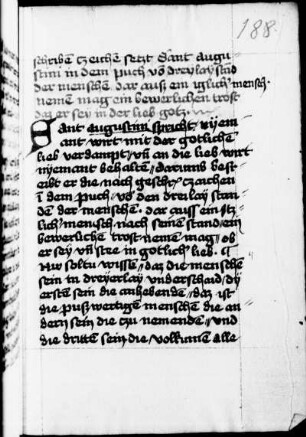 188
schriben czeichen setzt Sant augu
stini in dem puch vō dreylay stand
der menschen dar aus ein iglich mensch
nemen mag ein bewerlichen trost
das er sey in der lieb gotz
Sant augustin spricht nyem
ant wirt mit der gotlichen
lieb verdampt vn̄ an die lieb wirt
nyemant behalten darumb besc
eibt er die nach geschr czaichen
in dem puch vō den dreilay stan
den der menschen dar auss ein itz
lich mensch nach seinem stand ein
bewerlichen trost nemen mag ob
er sey vn̄ stee in gotlicher lieb
Nu soltu wissen das die menschen
sein in dreyerlay vnderschaid dy
ersten sein die anhebenden daz ist
die puszwertigen menschen die an
dern sein die czu nemenden vnd
die dritten sein die volkumen alle